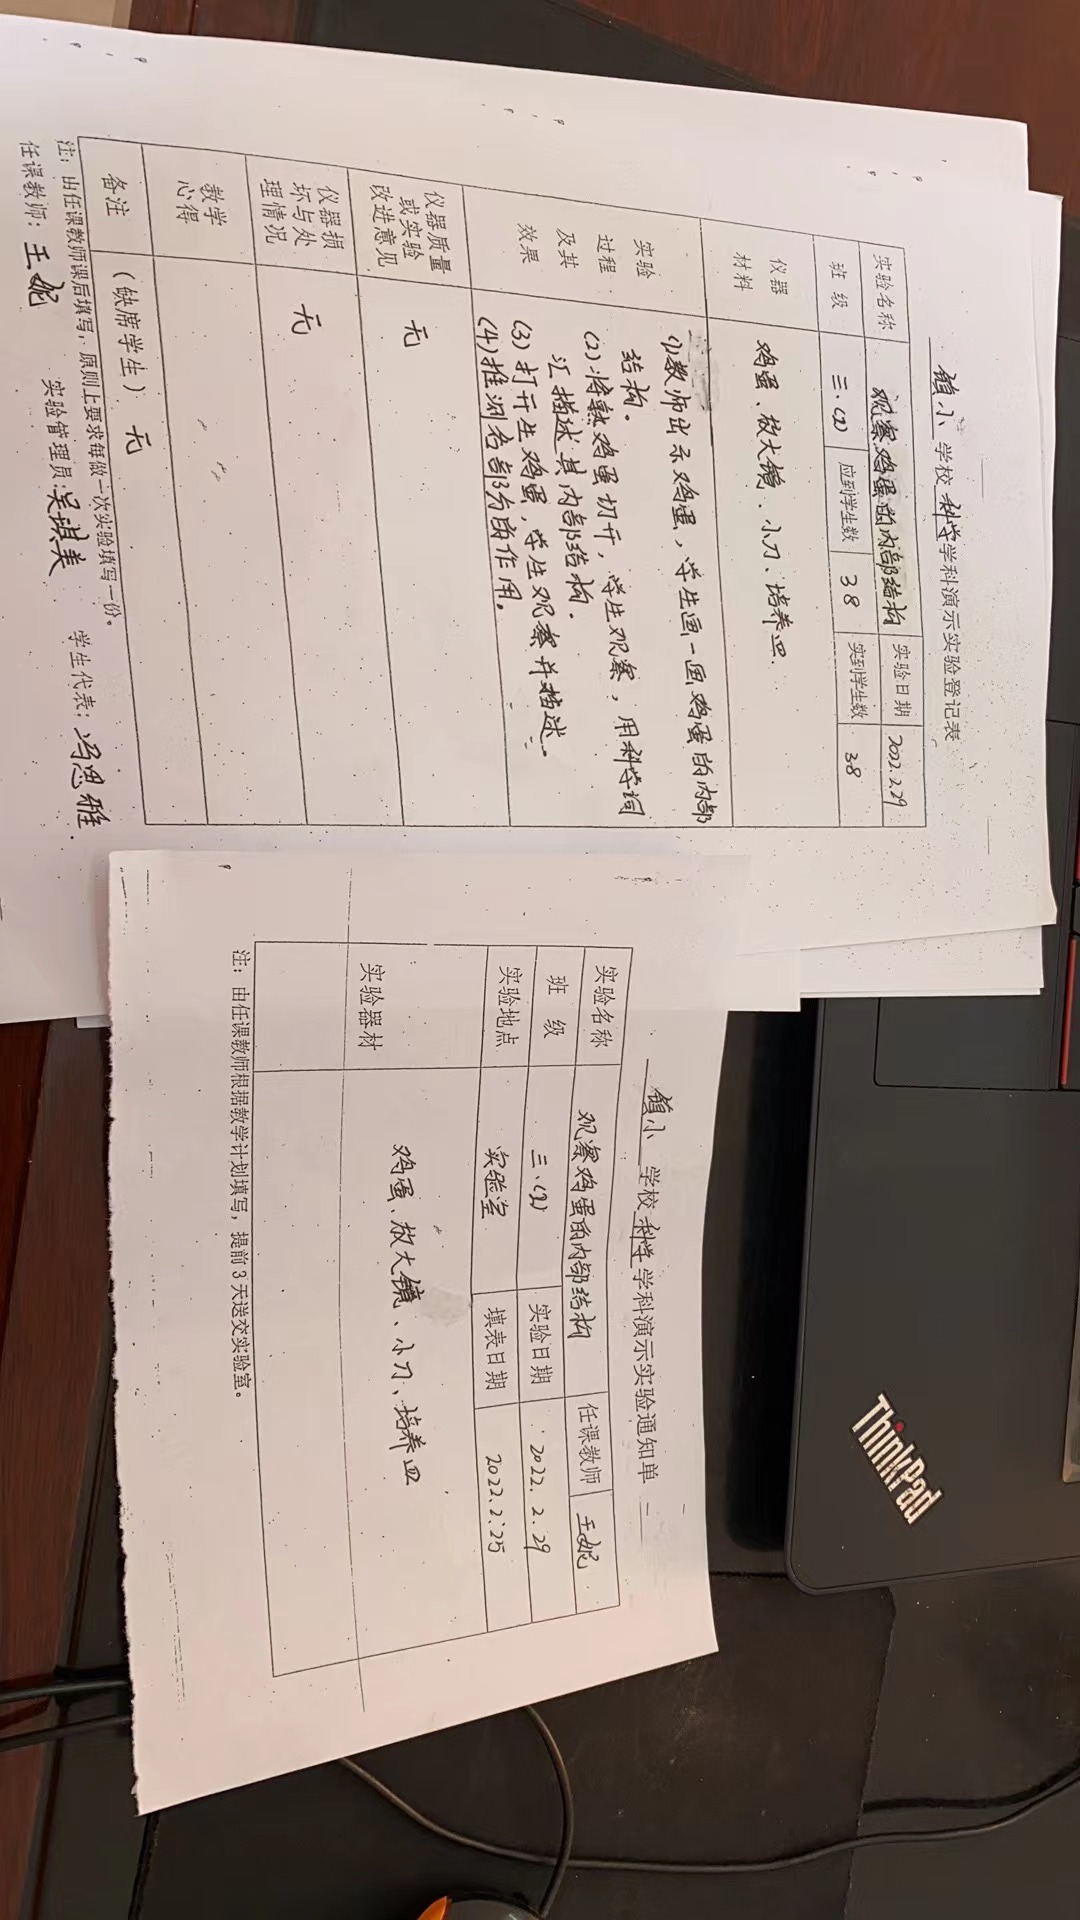 镇小学校科学学科演示实验登记表
实验名称 观察鸡蛋的内部结构 实验日期 2022.2.29
班级 三.(2) 应到学生数 38 实到学生数 38
仪器材料 鸡蛋、放大镜、小刀、培养皿.
实验过程及其效果
(1)教师出示鸡蛋,学生画一画鸡蛋的内部
结构.
(2)将熟鸡蛋切开,学生观察,用科学词
汇描述其内部结构.
(3)打开生鸡蛋,学生观察并描述.
(4)推测各部分的作用.
仪器质量或实验改进意见 无
仪器损坏与处理情况 无
教学心得
备注 (缺席学生) 无
注:由任课教师课后填写,原则上要求每做一次实验填写一份。
任课教师:王妮 实验管理员:吴琪美 学生代表:冯思雅
镇小学校科学学科演示实验通知单
实验名称 观察鸡蛋的内部结构 任课教师 王妮
班级 三.(2) 实验日期 2022.2.29
实验地点 实验室 填表日期 2022.2.25
实验器材 鸡蛋、放大镜、小刀、培养皿
注:由任课教师根据教学计划填写,提前3天送交实验室。
ThinkPad